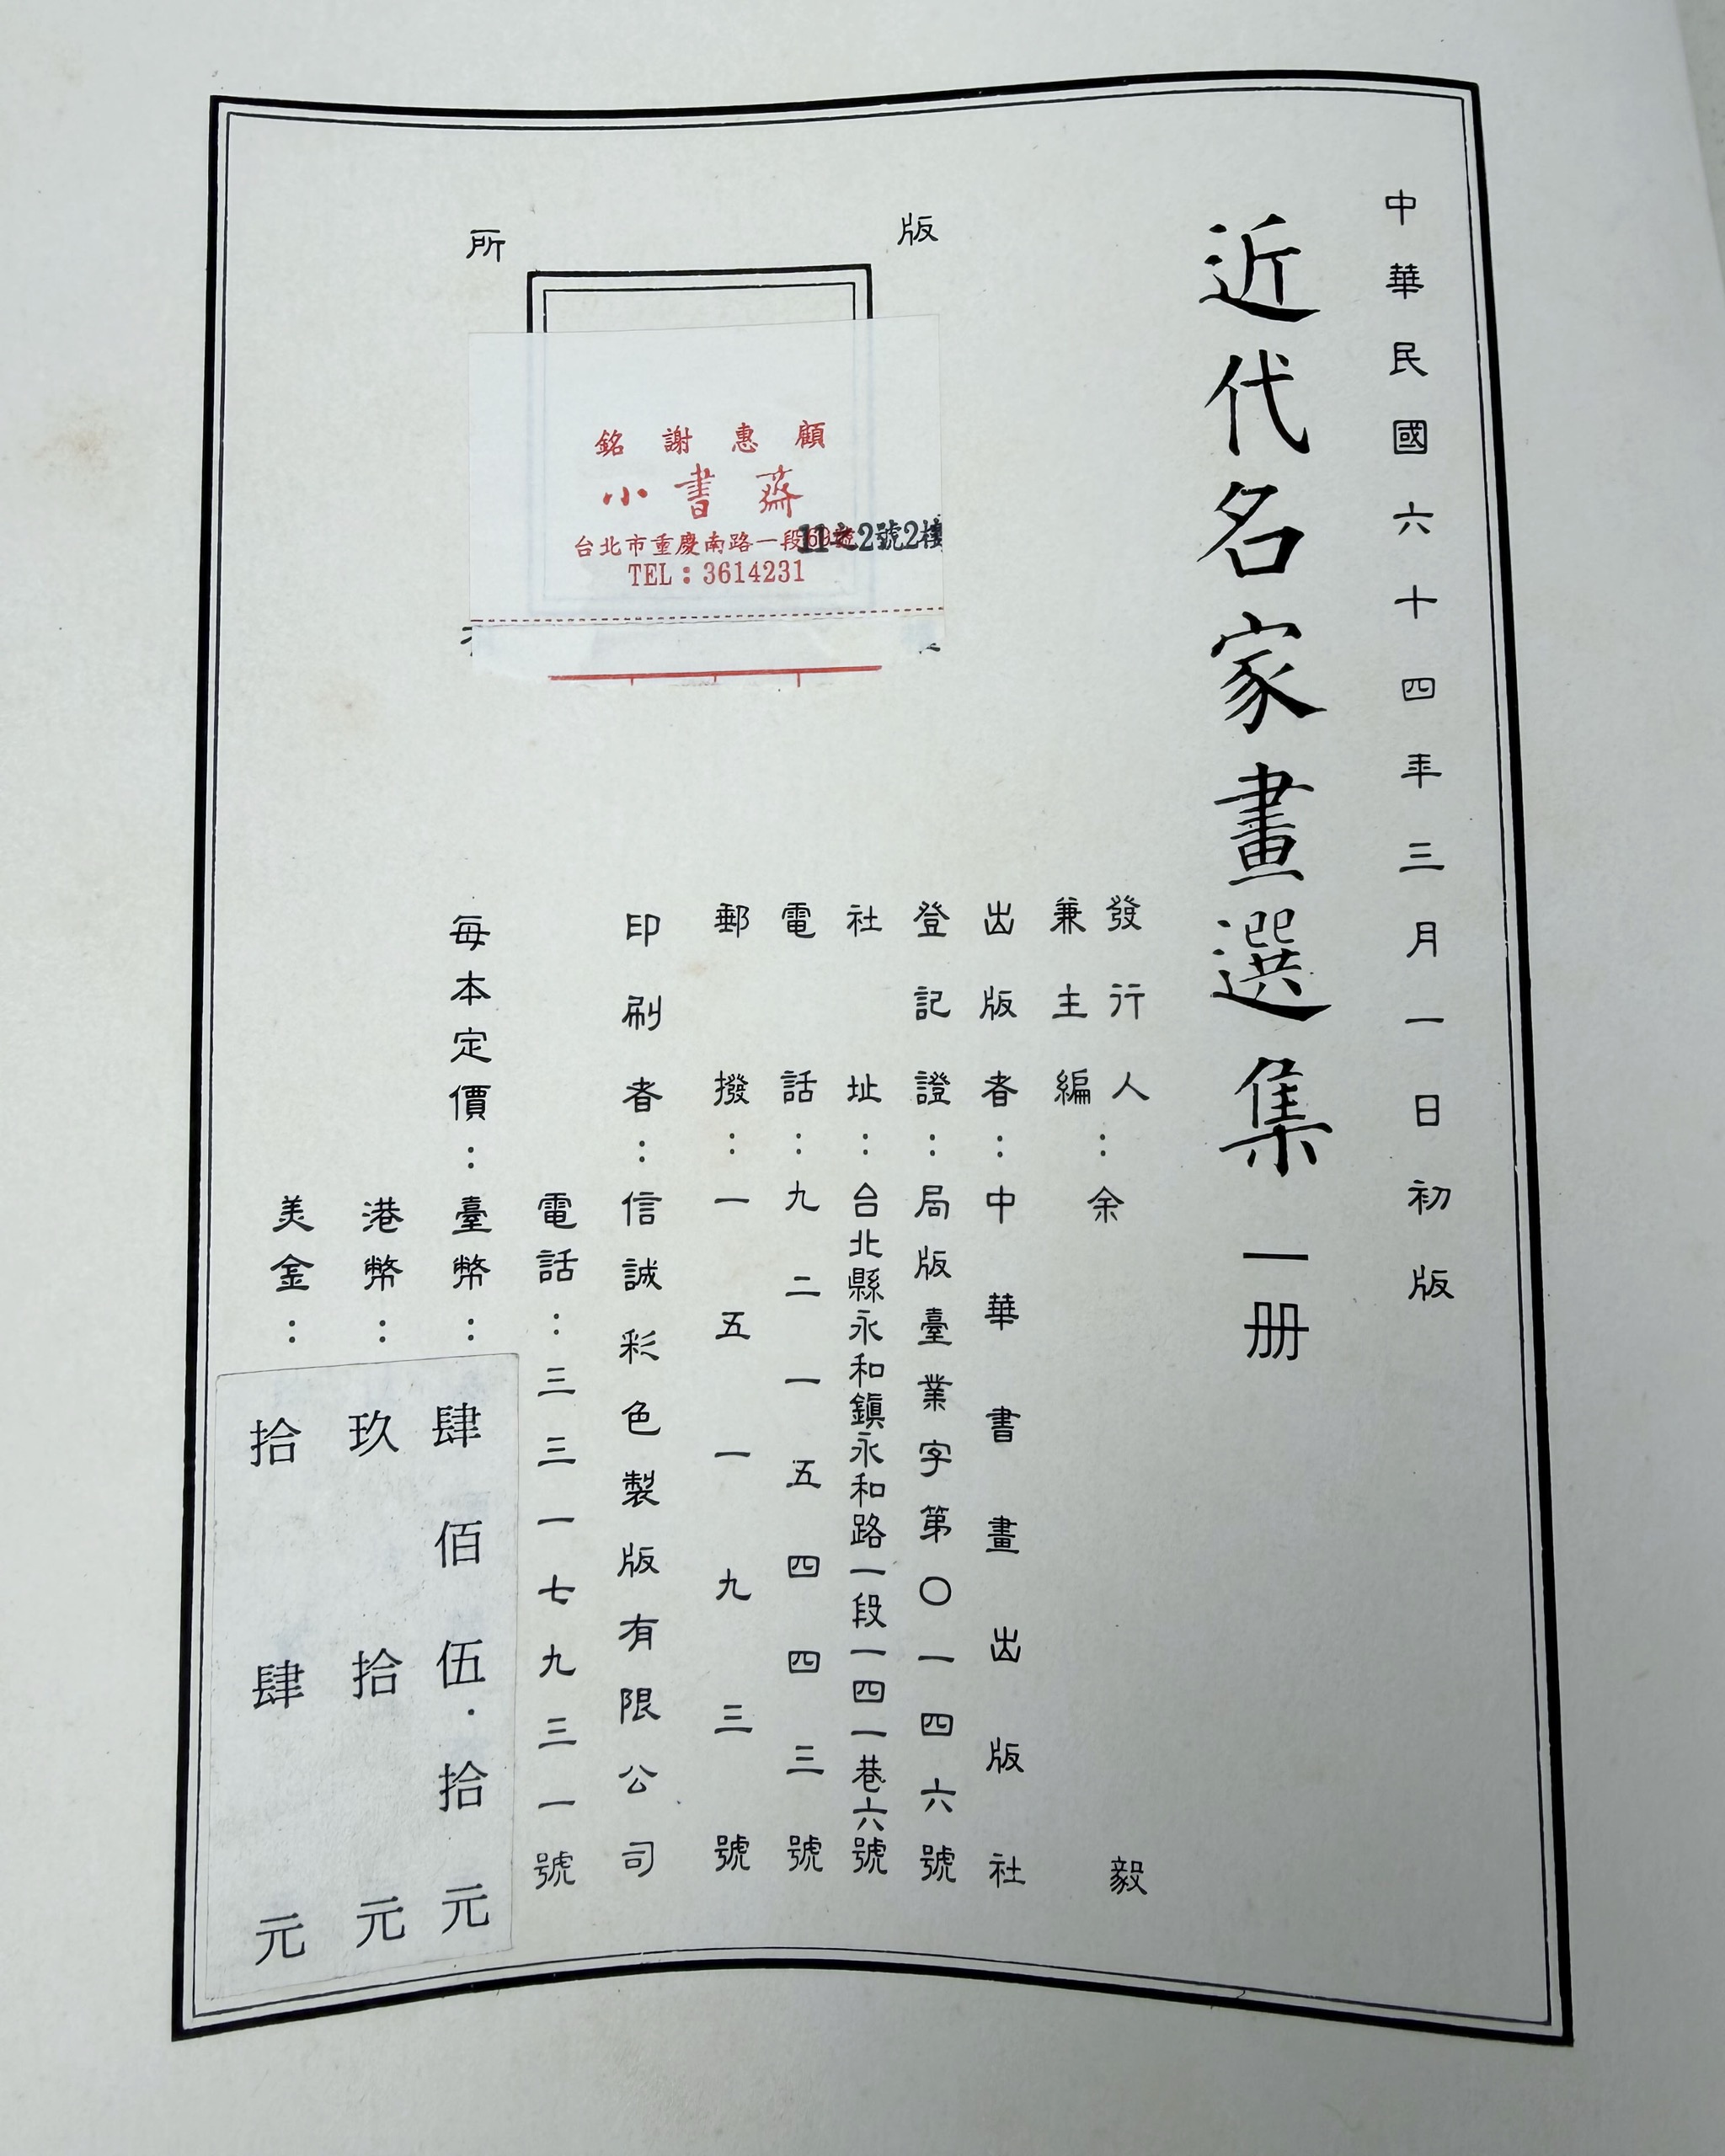 中華民國六十四年三月一日初版
近代名家畫選集 一册
發行人
兼主編：余毅
出版者：中華書畫出版社
登記證：局版臺業字第〇一四六號
社址：台北縣永和鎭永和路一段一四一巷六號
電話：九二一五四四三號
郵撥：一五一九三號
印刷者：信誠彩色製版有限公司
電話：三三一七九三一號
每本定價：臺幣：肆佰伍．拾元
港幣：玖拾元
美金：拾肆元
版
所
銘謝惠顧
小書齋
台北市重慶南路一段11之2號2樓
TEL：3614231